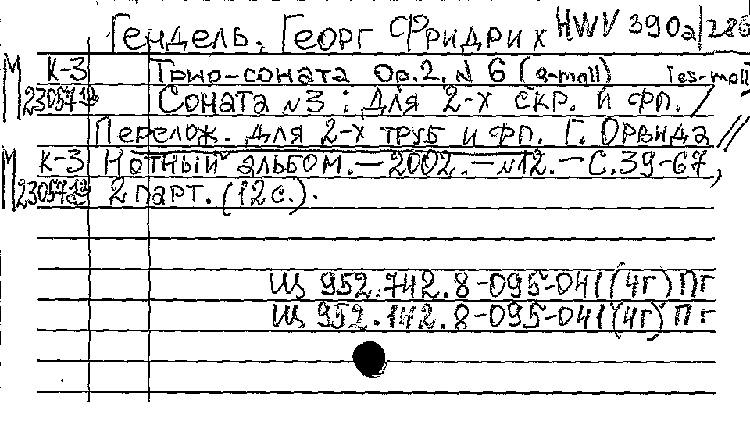 Гендель, Георг Фридрих HWV 390a/286
М К-3 Трио-соната Ор.2. N 6 (g-moll)
Соната N3 : для 2-х скр. и фп. /
Перелож. для 2-х труб и фп. Г. Орвида //
М К-3 Нотный альбом. — 2002. — N12. — С.39-67,
2 парт. (12 с.).
Щ 952.742.8-095-041(4г) Пг
Щ 952.142.8-095-041(4г) Пг